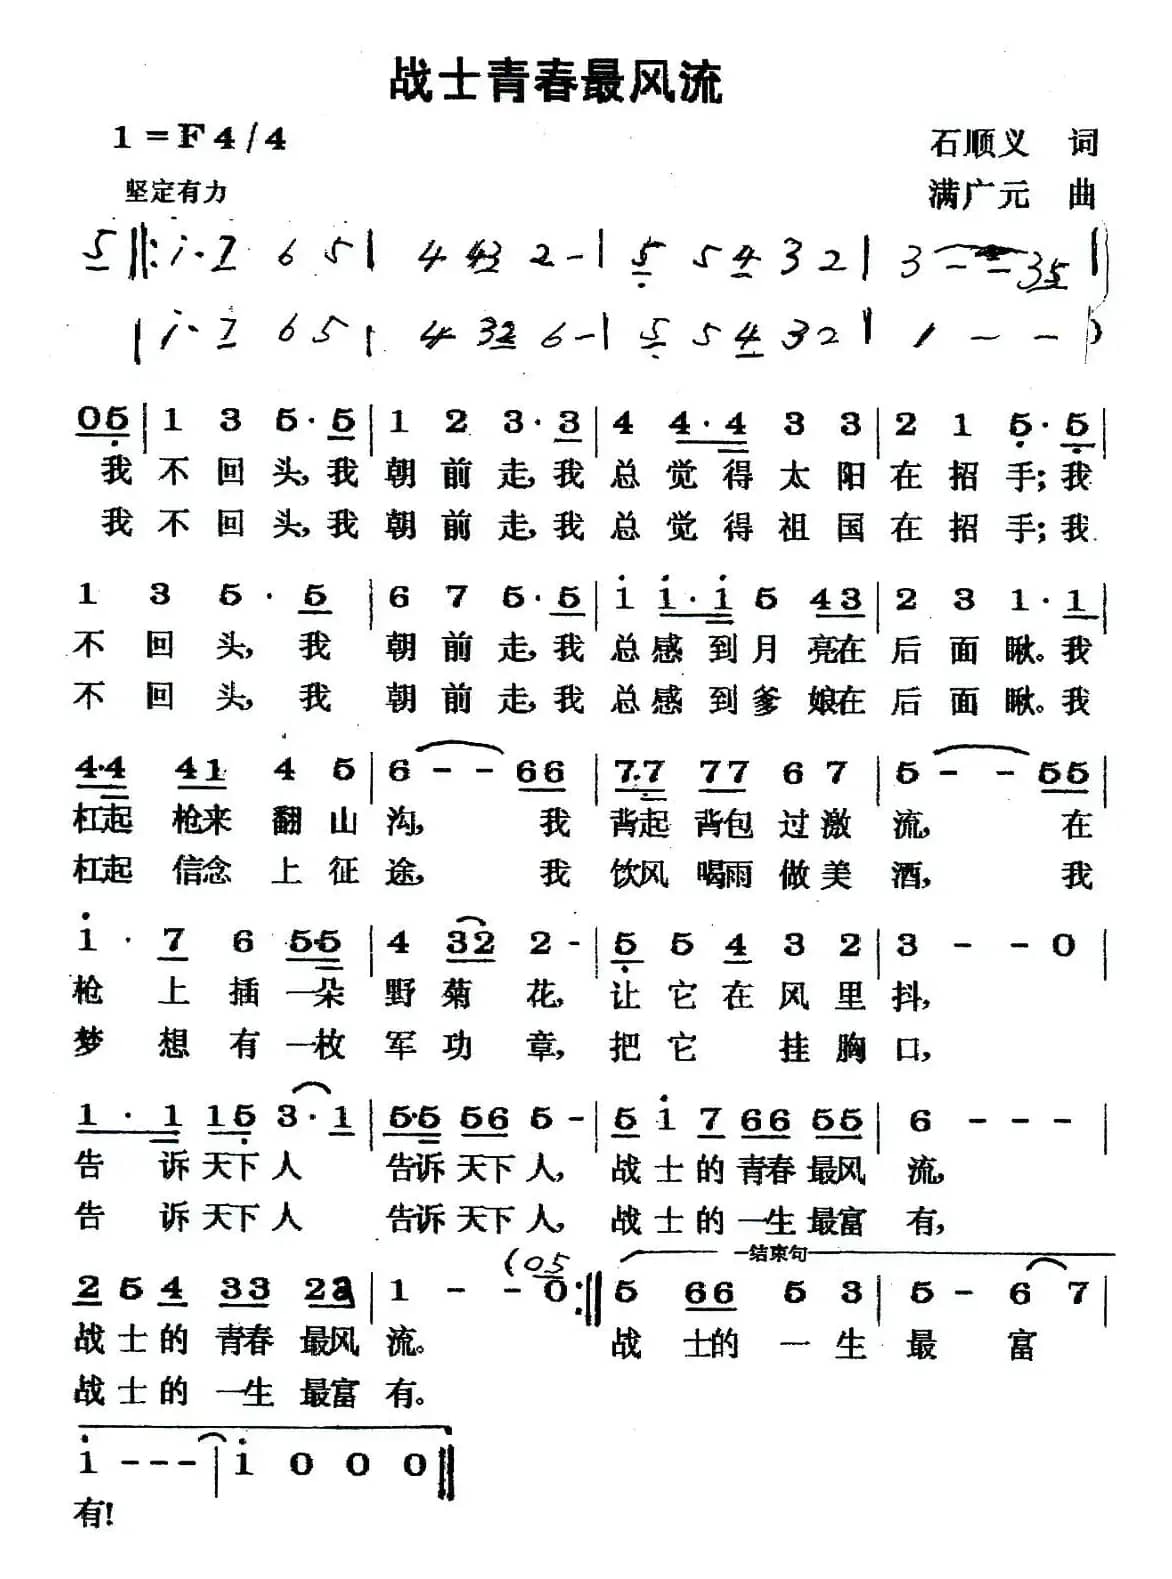 战士青春最风流
1=F 4/4
石顺义 词
坚定有力
满广元 曲
5 ‖: i· 7 6 5 | 4 43 2 - | 5 5 4 3 2 | 3 - - 35 |
| i· 7 6 5 | 4 32 6 - | 5 5 4 32 | 1 - - )
05 | 1 3 5· 5 | 1 2 3· 3 | 4 4·4 3 3 | 2 1 5· 5 |
我不回头,我朝前走,我总觉得太阳在招手;我
我不回头,我朝前走,我总觉得祖国在招手;我
1 3 5· 5 | 6 7 5· 5 | i i·i 5 43 | 2 3 1· 1 |
不回头,我朝前走,我总感到月亮在后面瞅。我
不回头,我朝前走,我总感到爹娘在后面瞅。我
4·4 41 4 5 | 6 - - 66 | 7·7 77 6 7 | 5 - - 55 |
扛起枪来翻山沟,我背起背包过激流,在
扛起信念上征途,我饮风喝雨做美酒,我
i· 7 6 5·5 | 4 32 2 - | 5 5 4 3 2 | 3 - - 0 |
枪上插一朵野菊花,让它在风里抖,
梦想有一枚军功章,把它挂胸口,
1· 1 15 3· 1 | 5·5 56 5 - | 5 i 7 66 55 | 6 - - - |
告诉天下人告诉天下人,战士的青春最风流,
告诉天下人告诉天下人,战士的一生最富有,
(05
结束句
2 5 4 33 23 | 1 - - 0 :‖ 5 66 5 3 | 5 - 6 7 |
战士的青春最风流。战士的一生最富
战士的一生最富有。
i - - - | i 0 0 0 ‖
有!